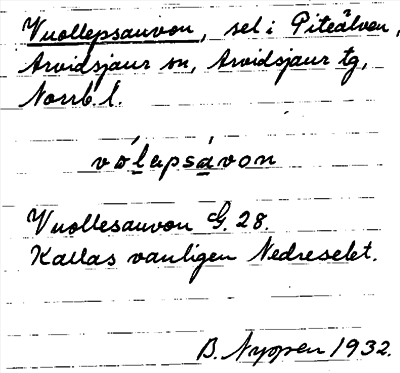 Vuollepsauvon, sel i Piteälven,
Arvidsjaur sn, Arvidsjaur tg,
Norrb. l.
vólapsávon
Vuollesauvon G. 28.
Kallas vanligen Nedreselet.
B. Nyppen 1932.